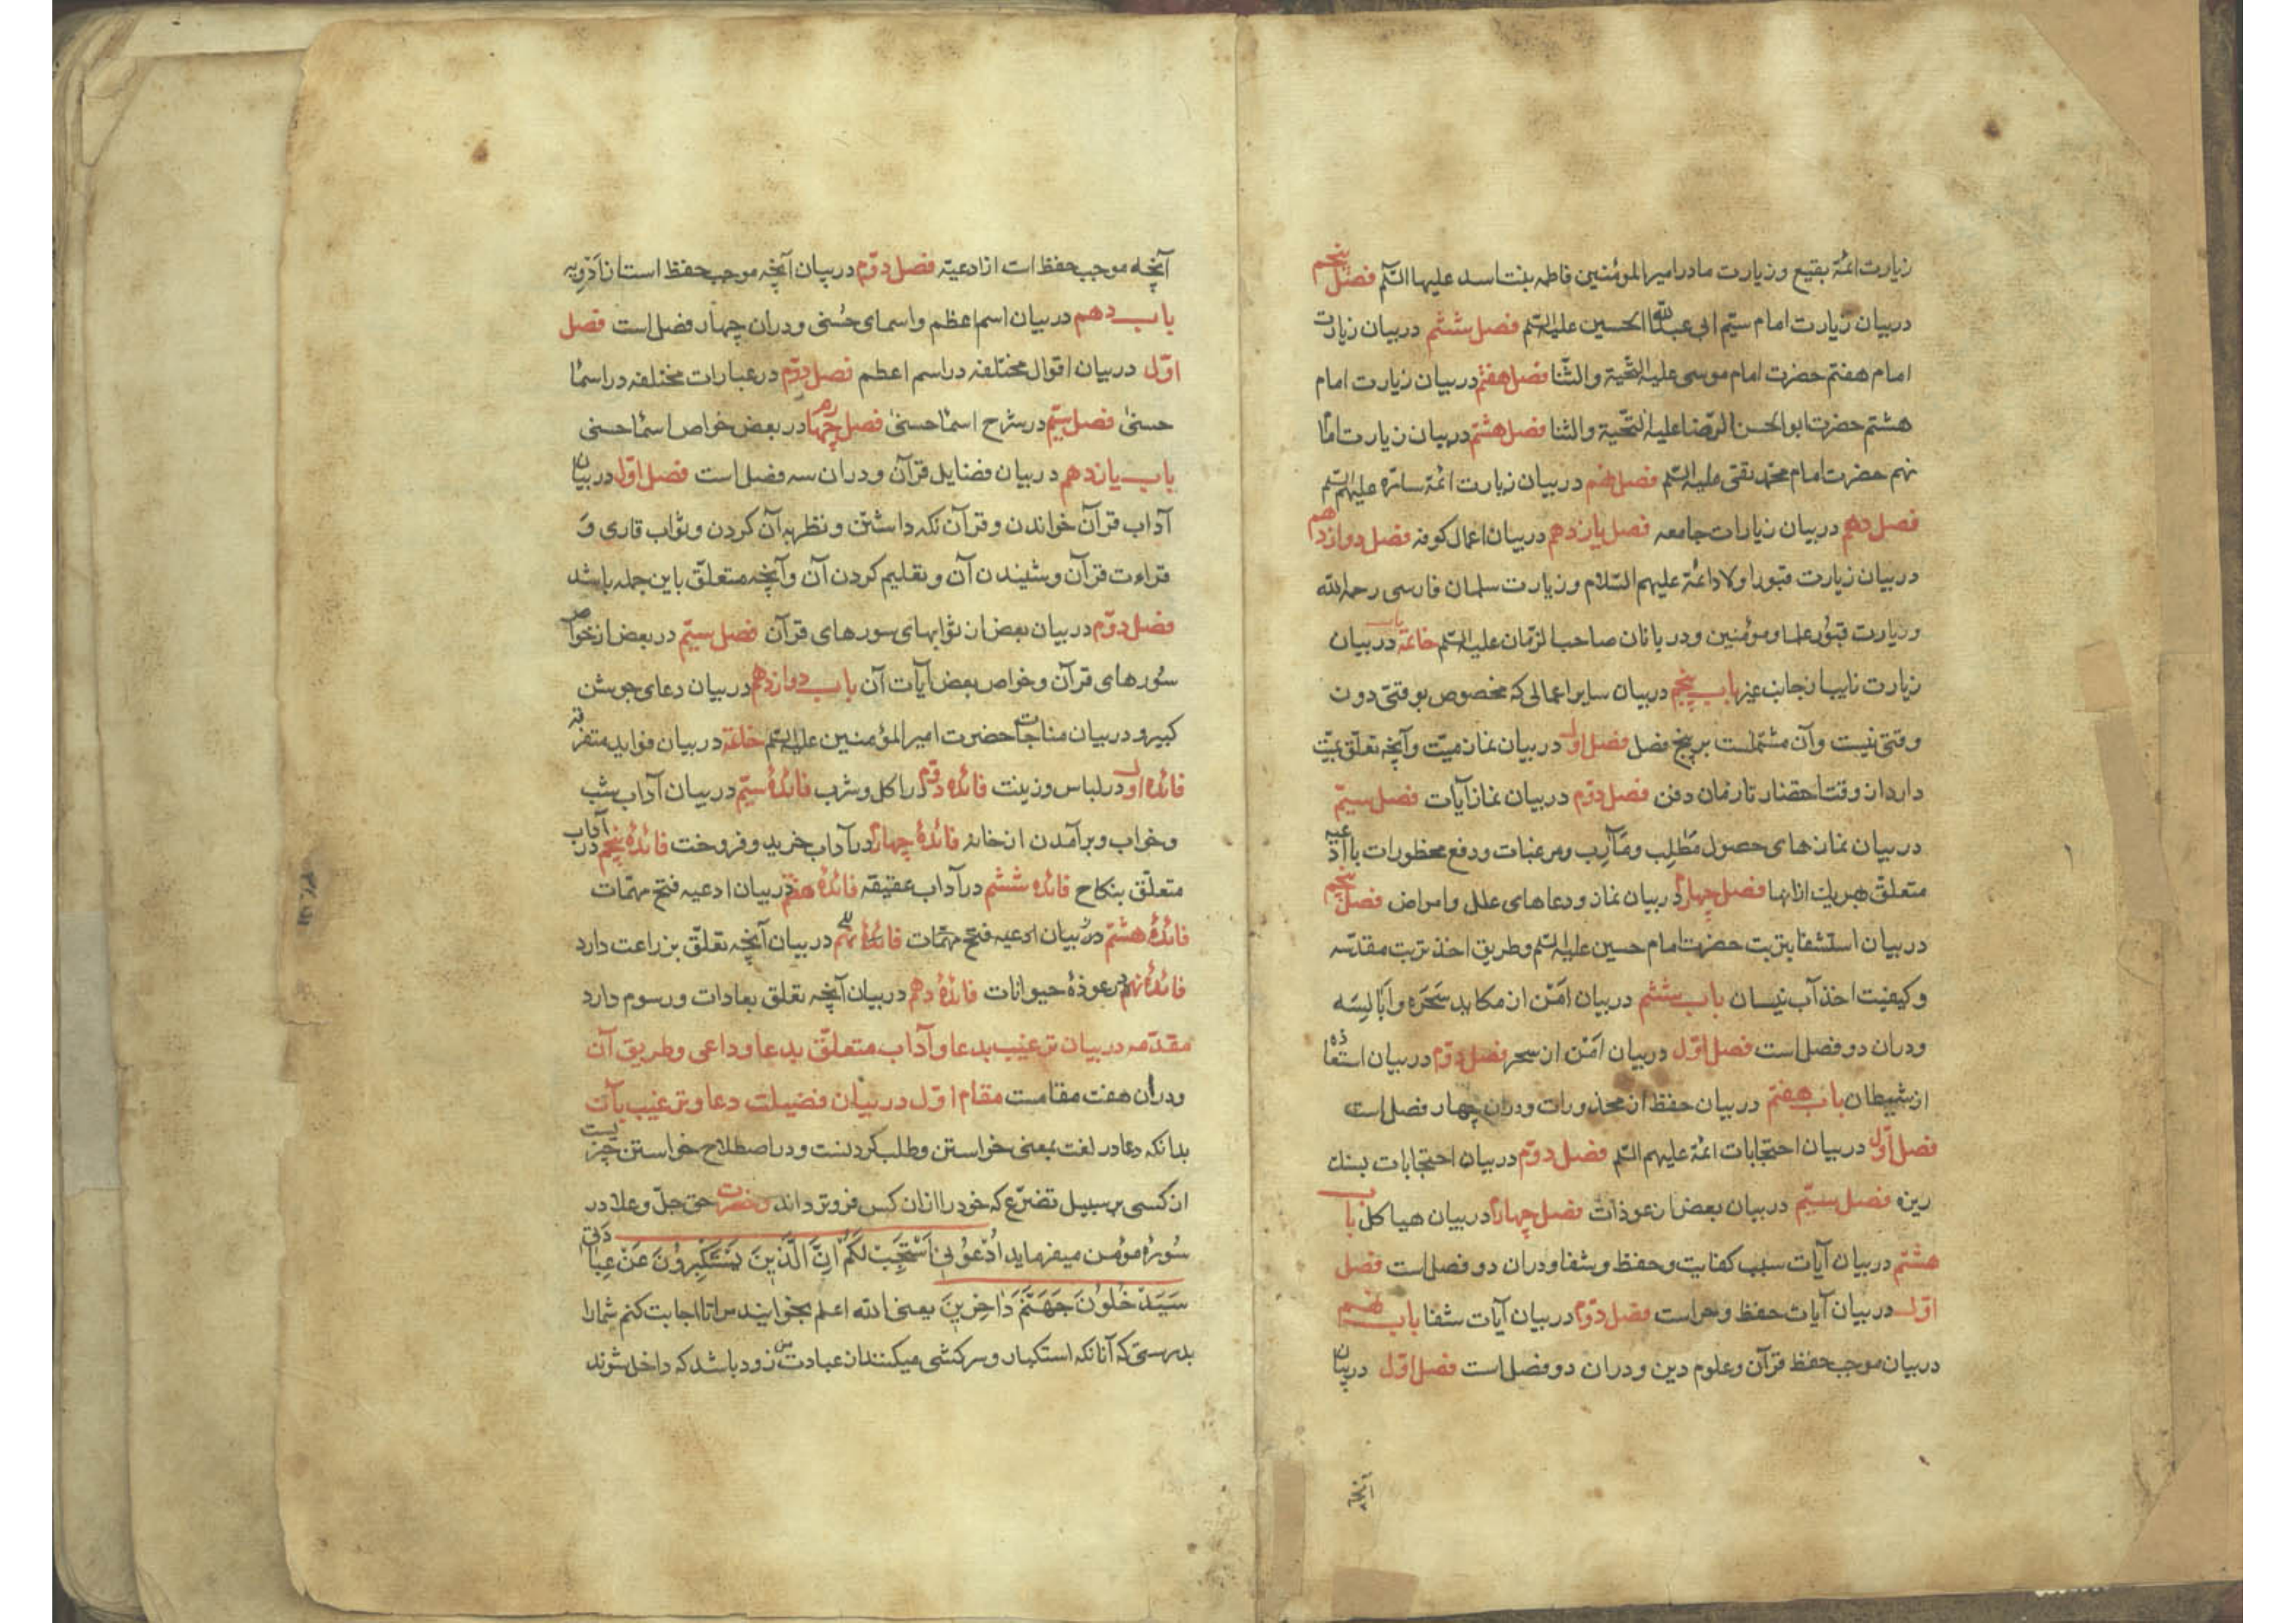 زیارت ائمّهٔ بقیع و زیارت مادر امیر المومنین فاطمه بنت اسد علیها السّلم فصل پنجم
در بیان زیارت امام سیّم ابی عبداللّه الحسین علیه السّلم فصل ششم در بیان زیارت
امام هفتم حضرت امام موسی علیه التّحیّة والثّنا فصل هفتم در بیان زیارت امام
هشتم حضرت ابوالحسن الرّضا علیه التّحیّة والثنا فصل هشتم در بیان زیارت امام
نهم حضرت امام محمّد تقی علیه السّلم فصل نهم در بیان زیارت ائمّهٔ سامره علیهم السّلم
فصل دهم در بیان زیارات جامعه فصل یازدهم در بیان اعمال کوفه فصل دوازدهم
در بیان زیارت قبور اولاد ائمّه علیهم السّلام و زیارت سلمان فارسی رحمه الله
و زیارت قبور علما و مؤمنین و در پایان صاحب الزّمان علیه السّلم خاتمة باب در بیان
زیارت نایبان جانب غیر باب پنجم در بیان سایر اعمالی که مخصوص بوقتی دون
وقتی نیست وآن مشتملست بر پنج فصل فصل اول در بیان نماز میّت وآنچه تعلّق بمیّت
دارد از وقت احتضار تا زمان دفن فصل دوّم در بیان نماز آیات فصل سیّم
در بیان نمازهای حصول مطالب و مآرب ومرغبات ودفع محظورات با ادعیه
متعلّق بهر یك از انها فصل چهارم در بیان نماز ودعاهای علل وامراض فصل پنجم
در بیان استشفا بتربت حضرت امام حسین علیه السّلم وطریق اخذ تربت مقدّسه
وکیفیت اخذ آب نیسان باب ششم در بیان امن از مکاید سحره وابالیسه
ودران دو فصل است فصل اوّل در بیان امن از سحر فصل دوّم در بیان استعاذه
از شیطان باب هفتم در بیان حفظ از محذورات ودران چهار فصل است
فصل اوّل در بیان احتجابات ائمّه علیهم السّلم فصل دوّم در بیان احتجابات بسنك
ریزه فصل سیّم در بیان بعض از عوذات فصل چهارم در بیان هیاکل باب
هشتم در بیان آیات سبب کفایت وحفظ وشفا ودران دو فصل است فصل
اوّل در بیان آیات حفظ وحراست فصل دوّم در بیان آیات شفا باب نهم
در بیان موجب حفظ قرآن وعلوم دین ودران دو فصل است فصل اوّل در بیان
آنچه
آنچه موجب حفظ است از ادعیّه فصل دوّم در بیان آنچه موجب حفظ است از ادویه
باب دهم در بیان اسم اعظم واسمای حسنی ودران چهار فصل است فصل
اوّل در بیان اقوال مختلفه در اسم اعظم فصل دوّم در عبارات مختلفه در اسمآ
حسنیٰ فصل سیّم در شرح اسمآ حسنیٰ فصل چهارم در بعض خواص اسمآ حسنی
باب یازدهم در بیان فضایل قرآن ودران سه فصل است فصل اوّل در بیان
آداب قرآن خواندن وقرآن نکه داشتن ونظر به آن کردن وثواب قاری و
قراءت قرآن وشنیدن آن وتعلیم کردن آن وآنچه متعلّق باین جمله باشد
فصل دوّم در بیان بعض از ثوابهای سورهای قرآن فصل سیّم در بعض از خواص
سورهای قرآن وخواص بعض آیات آن باب دوازدهم در بیان دعای جوشن
کبیر ودر بیان مناجات حضرت امیر المؤمنین علیه السّلم خاتمة در بیان فواید متفرقه
فائدهٔ اول در لباس وزینت فائدهٔ دوّم در اکل وشرب فائدهٔ سیّم در بیان آداب شب
وخواب وبرآمدن از خانه فائدهٔ چهارم در آداب خرید وفروخت فائدهٔ پنجم در آداب
متعلّق بنکاح فائدهٔ ششم در آداب عقیقه فائدهٔ هفتم در بیان ادعیه فتح مهمّات
فائدهٔ هشتم در بیان ادعیه فتح مهمّات فائدهٔ نهم در بیان آنچه تعلّق بزراعت دارد
فائدهٔ نهم در عوذهٔ حیوانات فائدهٔ دهم در بیان آنچه تعلق بعادات ورسوم دارد
مقدّمه در بیان ترغیب بدعا وآداب متعلّق بدعا وداعی وطریق آن
ودران هفت مقامست مقام اوّل در بیان فضیلت دعا وترغیب بآن
بدانکه دعا در لغت بمعنی خواستن وطلب کردنست ودر اصطلاح خواستن چیزیست
از کسی بر سبیل تضرّع که خود را ازان کس فروتر داند وحضرت حق جلّ وعلا در
سورهٔ مؤمن میفرماید اُدْعُونِی اَسْتَجِبْ لَکُمْ اِنَّ الَّذِینَ یَسْتَکْبِرُونَ عَنْ عِبَادَتِی
سَیَدْخُلُونَ جَهَنَّمَ دَاخِرِینَ یعنی الله اعلم بخوانید مرا تا اجابت کنم شمارا
بدرستی که آنانکه استکبار وسرکشی میکنند از عبادت من زود باشد که داخل شوند